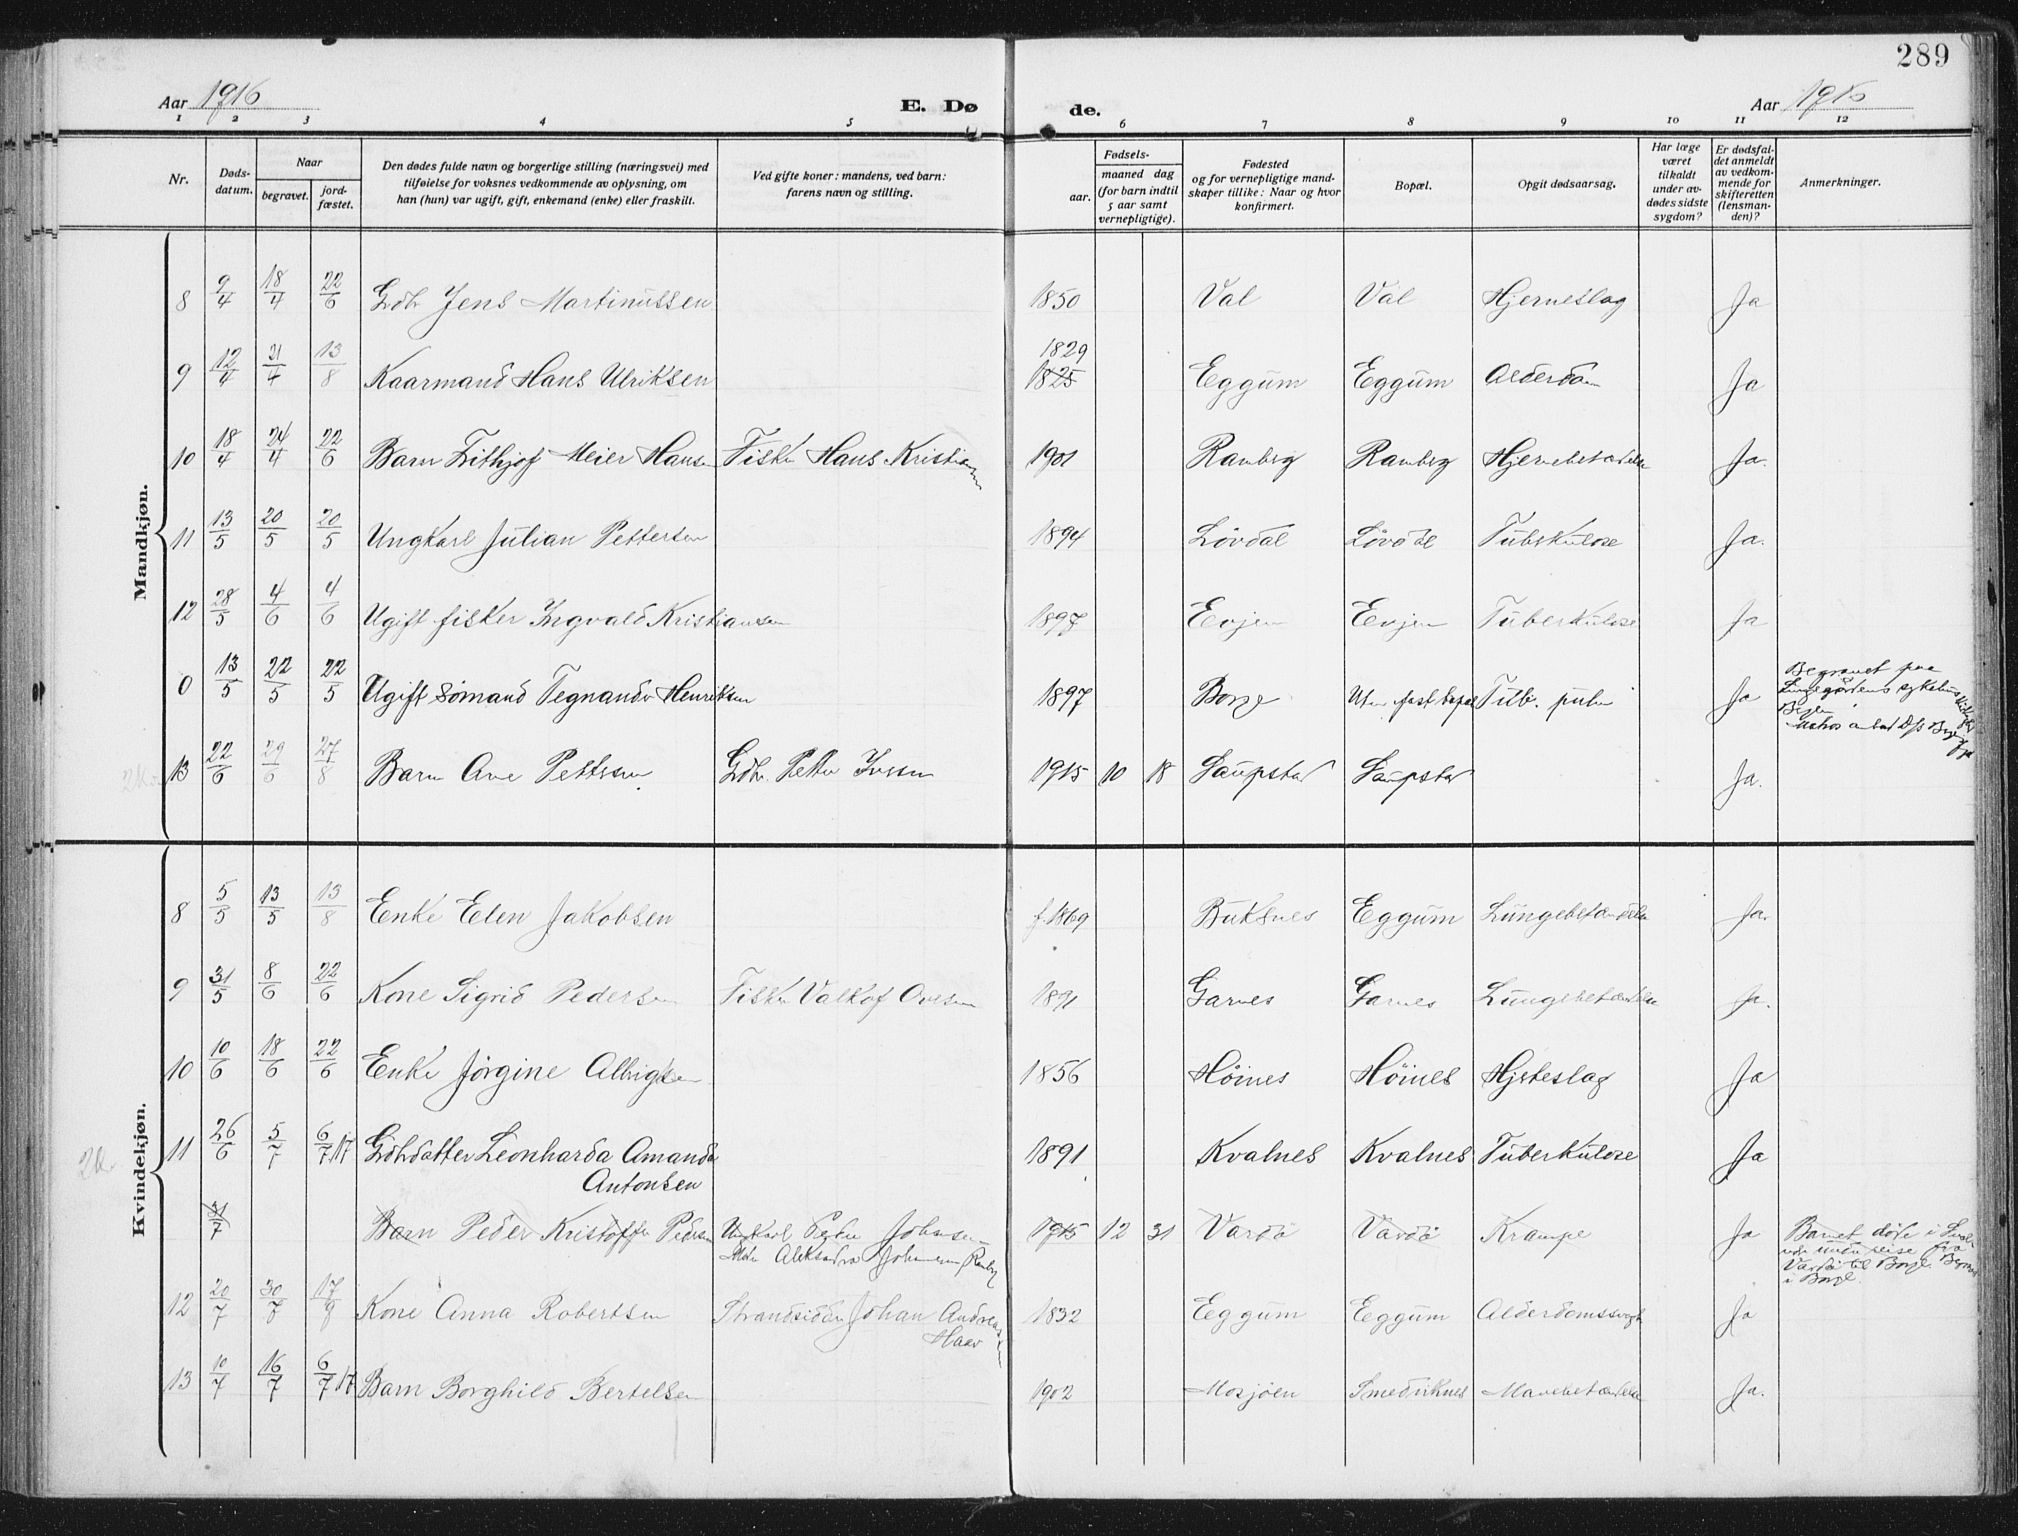 289
Aar 1916
E. Dø
de.
Aar 1916
1 2 3 4 5 6 7 8 9 10 11 12
Nr.
Døds-
datum.
Naar
begravet.
jord-
fæstet.
Den dødes fulde navn og borgerlige stilling (næringsvei) med
tilføielse for voksnes vedkommende av oplysning, om
han (hun) var ugift, gift, enkemand (enke) eller fraskilt.
Ved gifte koner: mandens, ved barn:
farens navn og stilling.
Fødsels-
aar.
maaned dag
(for barn indtil
5 aar samt
vernepligtige).
Fødested
og for vernepligtige mand-
skaper tillike: Naar og hvor
konfirmert.
Bopæl.
Opgit dødsaarsag.
Har læge
været
tilkaldt
under av-
dødes sidste
sygdom?
Er dødsfal-
det anmeldt
av vedkom-
mende for
skifteretten
(lensman-
den)?
Anmerkninger.
Mandkjøn.
8 9/4 18/4 22/6 Gdbr Jens Martinussen 1850 Val Val Hjerneslag Ja
1829
9 12/4 21/4 13/8 Kaarmand Hans Ulriksen 1825 Eggum Eggum Alderdom Ja
10 18/4 24/4 22/6 Barn Frithjof Meier Hansen Fisker Hans Kristiansen 1901 Ramberg Ramberg Hjernebetændelse Ja.
11 13/5 20/5 20/5 Ungkarl Julian Pettersen 1894 Løvdal Løvdal Tubskulose Ja.
12 28/5 4/6 4/6 Ugift fisker Ingvald Kristiansen 1897 Evjen Evjen Tuberkulose Ja
0 13/5 22/5 22/5 Ugift sømand Tegnander Henriksen 1897 Borge Uten fast bopæl Tub. pulm Ja Begravet paa
Lungegårdens sykehus
13 22/6 29/6 27/8 Barn Ove Pettersen Gdbr. Petter Iversen 1915 10 18 Saupstad Saupstad Ja.
Kvindekjøn.
8 5/5 13/5 13/8 Enke Elen Jakobsen f. 1869 Buksnes Eggum Lungebetændelse Ja.
9 31/5 8/6 22/6 Kone Sigrid Pedersen Fisker Valkof Ovesen 1891 Garnes Garnes Lungebetændelse Ja.
10 10/6 18/6 22/6 Enke Jørgine Albrigtsen 1856 Høines Høines Hjerteslag Ja
11 26/6 5/7 6/7 17 Gdbrdatter Leonharda Amanda 1891 Kvalnes Kvalnes Tuberkulose Ja
Antonsen
31/7 Barn Peder Kristoffer Pedersen Ungkarl Peder Johnsen 1915 12 31 Vardø Vardø Krampe Ja Barnet døde i Svol-
vær under reise fra
Moder Aleksandra Johannesen Ramberg
Vardø til Borge. Begravet
i Borge.
12 20/7 30/7 17/9 Kone Anna Robertsen Strandsidder Johan Andreassen 1832 Eggum Eggum Alderdomssvagh Ja
Haav
13 10/7 16/7 6/7 17 Barn Borghild Bertelsen 1902 Mosjøen Smedviknes Mavebetændelse Ja.